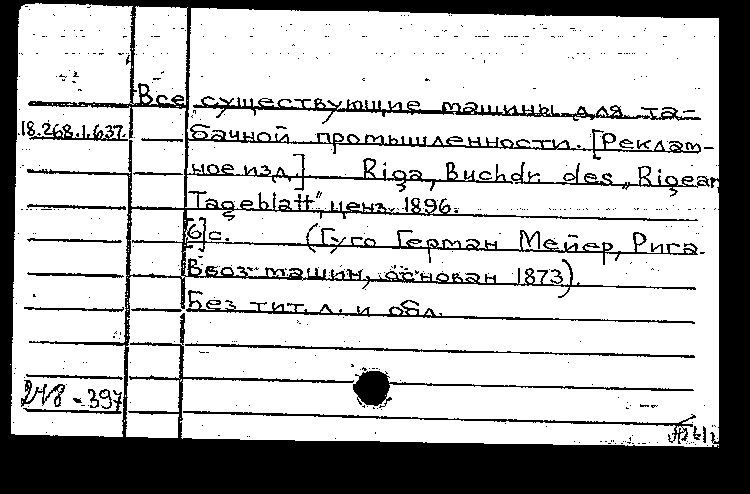 Все существующие машины для та-
18.268.1.637. бачной промышленности. [Реклам-
ное изд.] Riga, Buchdr. des „Rigear
Tageblatt", ценз. 1896.
[6]с. (Гуго Герман Мейер, Рига.
Ввоз машин, основан 1873).
Без тит. л. и обл.
248-397